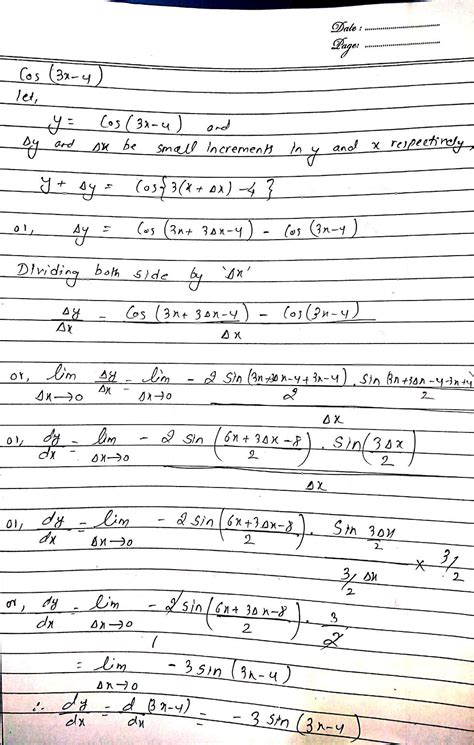 Date :
Page:
Cos (3x-4)
let,
y = Cos (3x-4) and
Δy and Δx be small increments in y and x respectively,
y + Δy = Cos{3(x + Δx) -4}
or, Δy = Cos (3x+ 3Δx-4) - Cos (3x-4)
Dividing both side by 'Δx'
Δy/Δx = Cos (3x+ 3Δx-4) - Cos(3x-4) / Δx
or, lim Δx→0 Δy/Δx = lim Δx→0 - 2 Sin (3x+3Δx-4+3x-4)/2 . Sin (3x+3Δx-4-3x+4)/2 / Δx
or, dy/dx = lim Δx→0 - 2 Sin (6x+3Δx-8 / 2) . Sin(3Δx / 2) / Δx
or, dy/dx = lim Δx→0 - 2 Sin (6x+3Δx-8 / 2) . Sin 3Δx/2 / 3/2 Δx × 3/2
or, dy/dx = lim Δx→0 - 2 Sin (6x+3Δx-8 / 2) . 3/2
= lim Δx→0 - 3 Sin (3x-4)
∴ dy/dx = d/dx (3x-4) = - 3 Sin (3x-4)